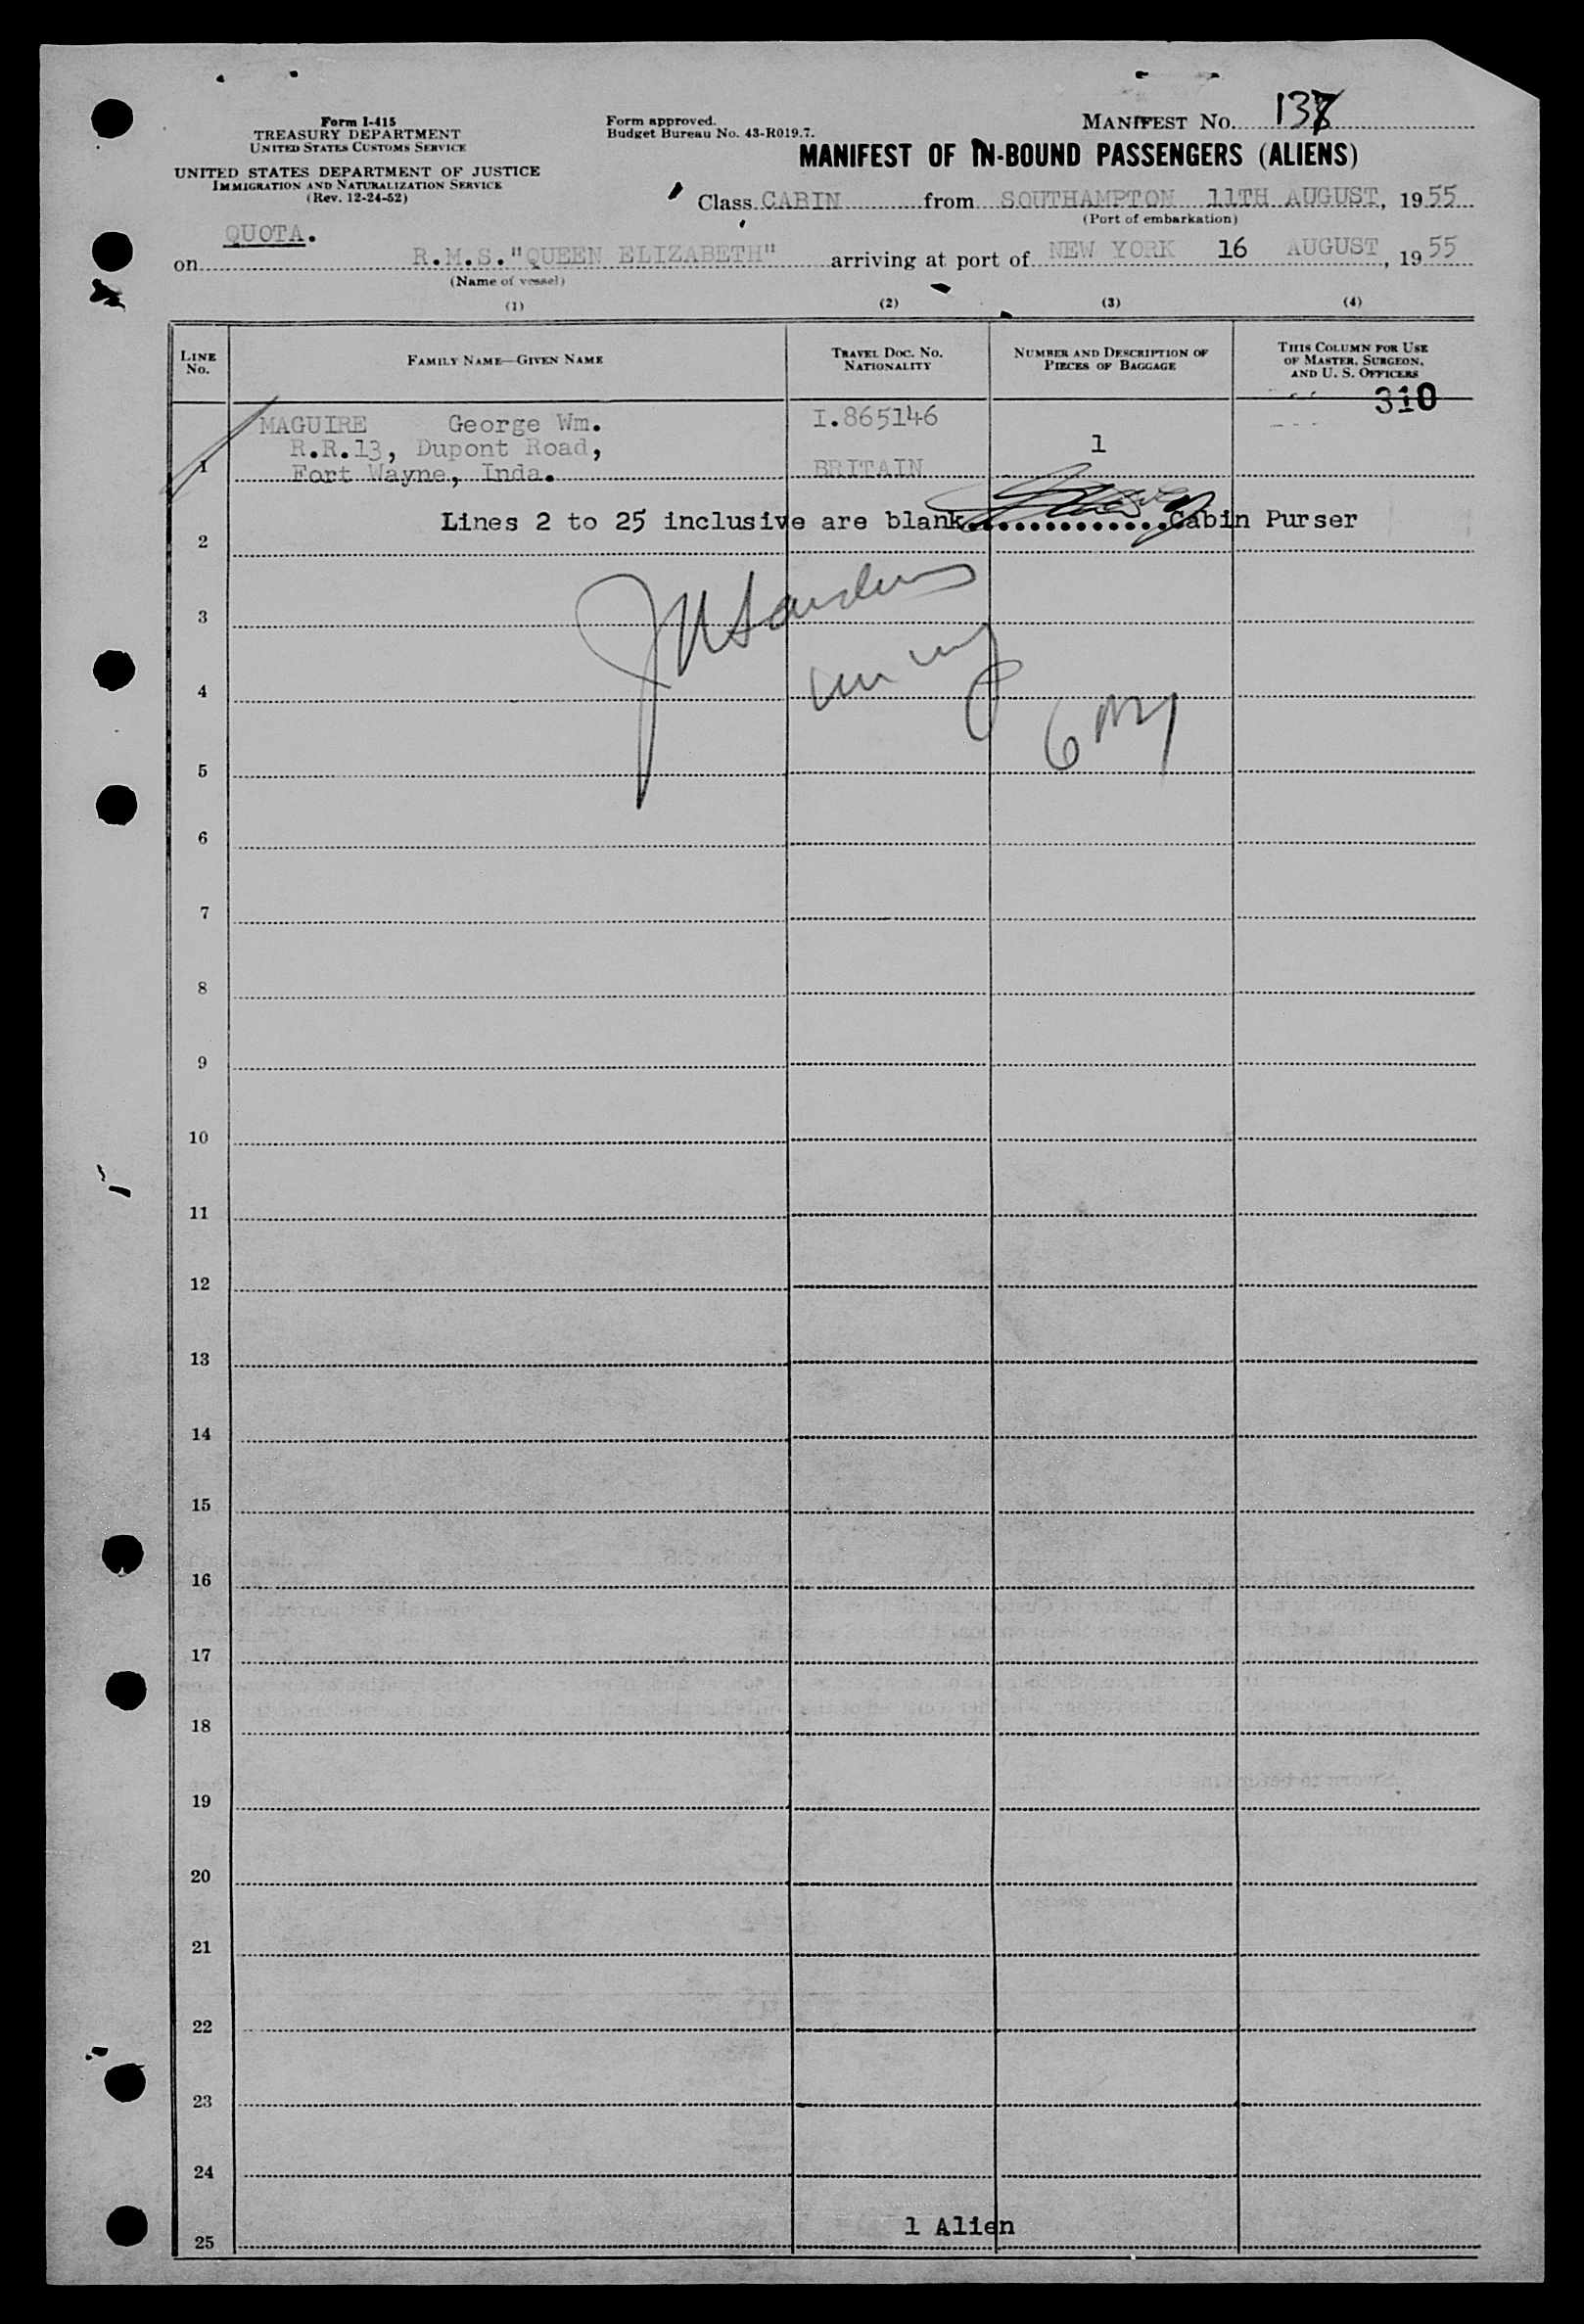 Form I-415
TREASURY DEPARTMENT
UNITED STATES CUSTOMS SERVICE
UNITED STATES DEPARTMENT OF JUSTICE
IMMIGRATION AND NATURALIZATION SERVICE
(Rev. 12-24-52)
Form approved.
Budget Bureau No. 43-R019.7.
MANIFEST NO.
MANIFEST OF IN-BOUND PASSENGERS (ALIENS)
Class CABIN from SOUTHAMPTON 11TH AUGUST, 1955
(Port of embarkation)
QUOTA.
on R.M.S."QUEEN ELIZABETH" arriving at port of NEW YORK 16 AUGUST, 1955
(Name of vessel)
(1) (2) (3) (4)
LINE NO.
FAMILY NAME—GIVEN NAME
TRAVEL DOC. NO.
NATIONALITY
NUMBER AND DESCRIPTION OF
PIECES OF BAGGAGE
THIS COLUMN FOR USE
OF MASTER, SURGEON,
AND U. S. OFFICERS
310
MAGUIRE George Wm. I.865146
R.R.13, Dupont Road, 1
1 Fort Wayne, Inda. BRITAIN
Lines 2 to 25 inclusive are blank..............Cabin Purser
2
3
4
5
6
7
8
9
10
11
12
13
14
15
16
17
18
19
20
21
22
23
24
1 Alien
25